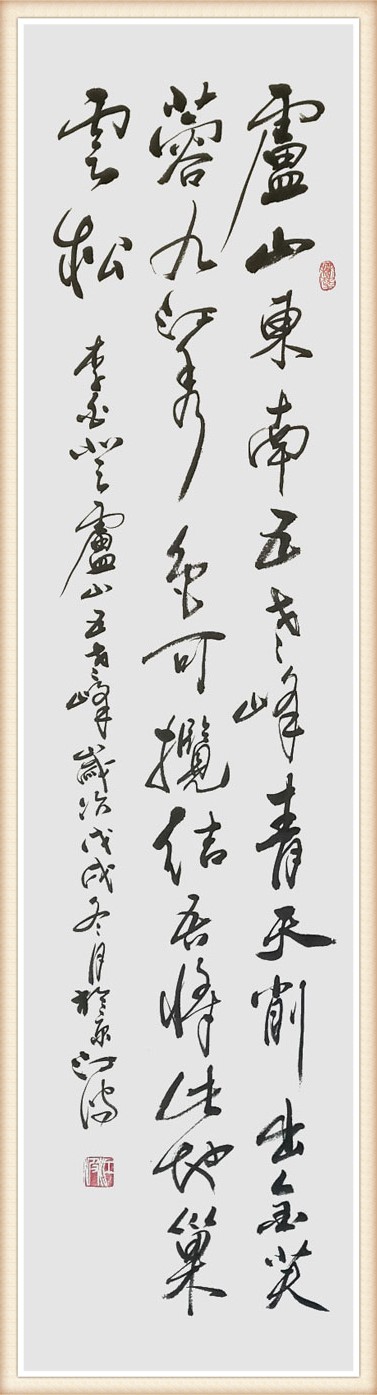 盧山東南五老峰青天削出金芙
蓉九江秀色可攬結吾將此地巢
雲松
李白登盧山五老峰歲次戊戌冬月於京江